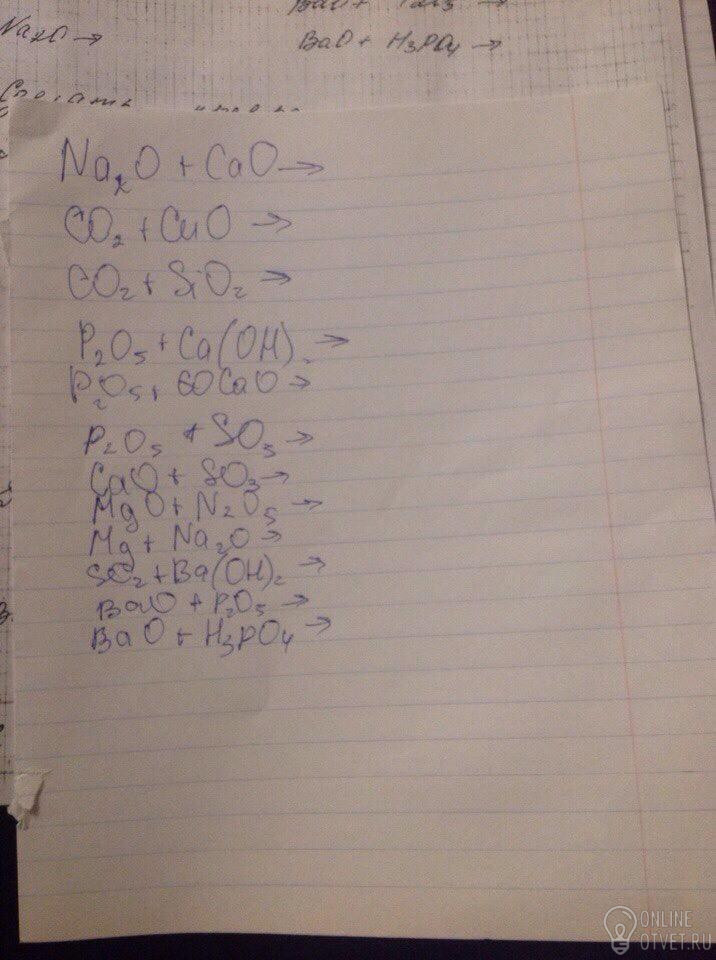 BaO + H₃PO₄ →
Na₂O →
Na₂O + CaO →
CO₂ + CuO →
CO₂ + SiO₂ →
P₂O₅ + Ca(OH)₂ →
P₂O₅ + CaO →
P₂O₅ + SO₃ →
CaO + SO₃ →
MgO + N₂O₅ →
Mg + Na₂O →
SO₂ + Ba(OH)₂ →
BaO + P₂O₅ →
BaO + H₃PO₄ →
ONLINE
OTVET.RU